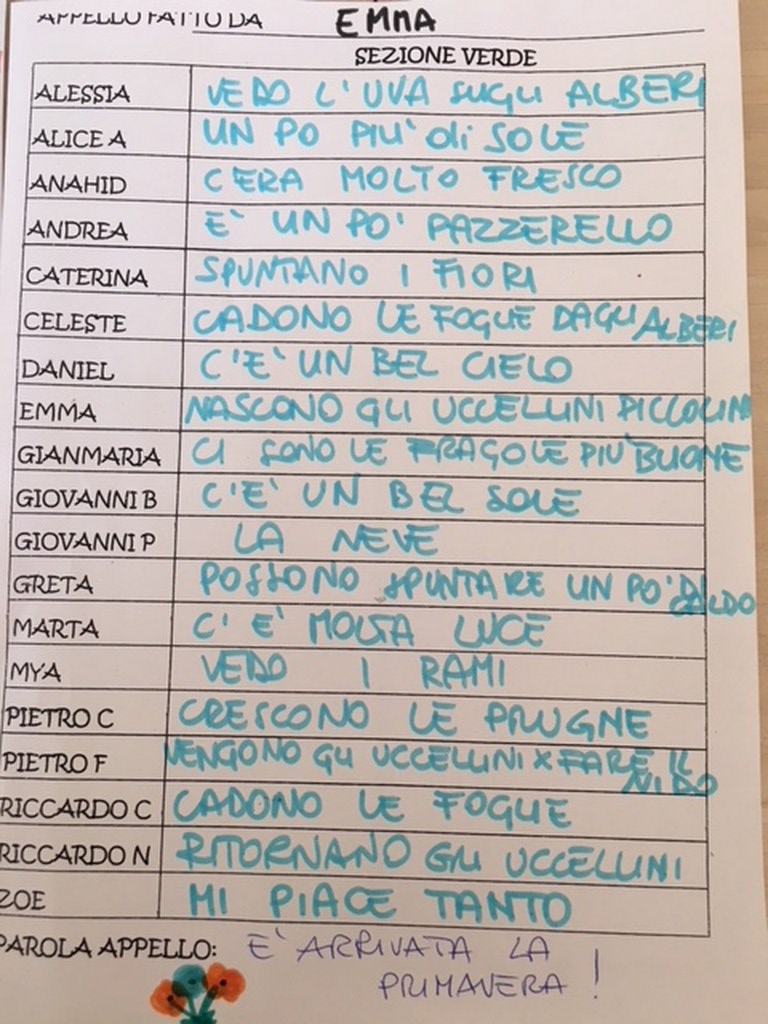 APPELLO FATTO DA EMMA
SEZIONE VERDE
ALESSIA VEDO L'UVA SUGLI ALBERI
ALICE A UN PO PIU' di SOLE
ANAHID C'ERA MOLTO FRESCO
ANDREA E' UN PO' PAZZERELLO
CATERINA SPUNTANO I FIORI
CELESTE CADONO LE FOGLIE DAGLI ALBERI
DANIEL C'E' UN BEL CIELO
EMMA NASCONO GLI UCCELLINI PICCOLINI
GIANMARIA CI SONO LE FRAGOLE PIU' BUONE
GIOVANNI B C'E' UN BEL SOLE
GIOVANNI P LA NEVE
GRETA POSSONO SPUNTARE UN PO' CALDO
MARTA C'E' MOLTA LUCE
MYA VEDO I RAMI
PIETRO C CRESCONO LE PRUGNE
PIETRO F VENGONO GLI UCCELLINI X FARE IL NIDO
RICCARDO C CADONO LE FOGLIE
RICCARDO N RITORNANO GLI UCCELLINI
ZOE MI PIACE TANTO
PAROLA APPELLO: E' ARRIVATA LA
PRIMAVERA !